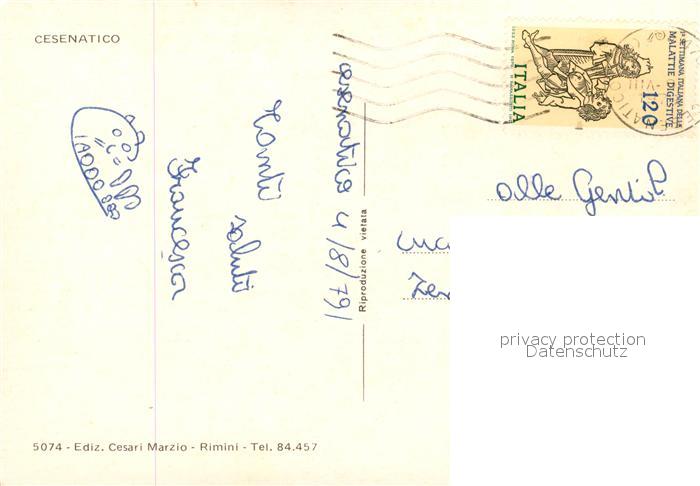 CESENATICO
1ª SETTIMANA ITALIANA DELLE
MALATTIE DIGESTIVE
120
ITALIA
Cesenatico 4/8/79
Tanti
saluti
Francesca
Riproduzione vietata
alle Gentil
privacy protection
Datenschutz
5074 - Ediz. Cesari Marzio - Rimini - Tel. 84.457